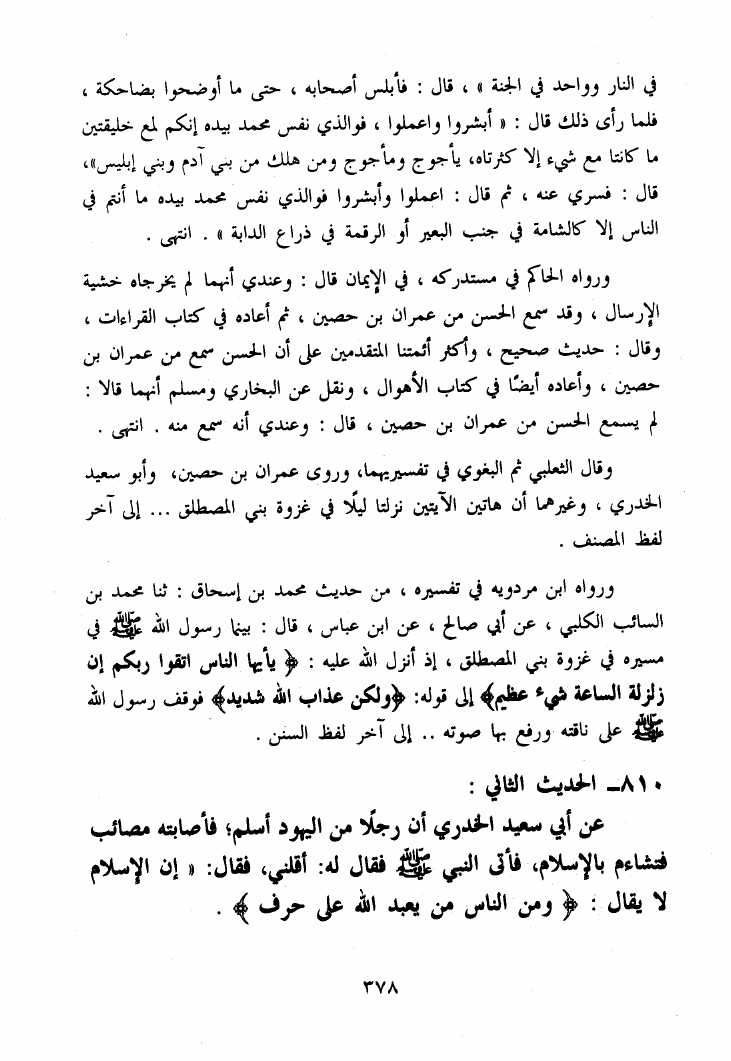 في النار وواحد في الجنة » ، قال : فأبلس أصحابه ، حتى ما أوضحوا بضاحكة ،
فلما رأى ذلك قال : « أبشروا واعملوا ، فوالذي نفس محمد بيده إنكم لمع خليقتين
ما كانتا مع شيء إلا كثرتاه، يأجوج ومأجوج ومن هلك من بني آدم وبني إبليس»،
قال : فسري عنه ، ثم قال : اعملوا وأبشروا فوالذي نفس محمد بيده ما أنتم في
الناس إلا كالشامة في جنب البعير أو الرقمة في ذراع الدابة » . انتهى .
ورواه الحاكم في مستدركه ، في الإيمان قال : وعندي أنهما لم يخرجاه خشية
الإرسال ، وقد سمع الحسن من عمران بن حصين ، ثم أعاده في كتاب القراءات ،
وقال : حديث صحيح ، وأكثر أئمتنا المتقدمين على أن الحسن سمع من عمران بن
حصين ، وأعاده أيضًا في كتاب الأهوال ، ونقل عن البخاري ومسلم أنهما قالا :
لم يسمع الحسن من عمران بن حصين ، قال : وعندي أنه سمع منه . انتهى .
وقال الثعلبي ثم البغوي في تفسيريهما، وروى عمران بن حصين، وأبو سعيد
الخدري ، وغيرهما أن هاتين الآيتين نزلتا ليلًا في غزوة بني المصطلق ... إلى آخر
لفظ المصنف .
ورواه ابن مردويه في تفسيره ، من حديث محمد بن إسحاق : ثنا محمد بن
السائب الكلبي ، عن أبي صالح ، عن ابن عباس ، قال : بينما رسول الله ﷺ في
مسيره في غزوة بني المصطلق ، إذ أنزل الله عليه : ﴿ يأيها الناس اتقوا ربكم إن
زلزلة الساعة شيء عظيم﴾ إلى قوله: ﴿ولكن عذاب الله شديد﴾ فوقف رسول الله
ﷺ على ناقته ورفع بها صوته .. إلى آخر لفظ السنن .
٨١٠ـ الحديث الثاني :
عن أبي سعيد الخدري أن رجلًا من اليهود أسلم؛ فأصابته مصائب
فتشاءم بالإسلام، فأتى النبي ﷺ فقال له: أقلني، فقال: « إن الإسلام
لا يقال : ﴿ ومن الناس من يعبد الله على حرف ﴾ .
٣٧٨